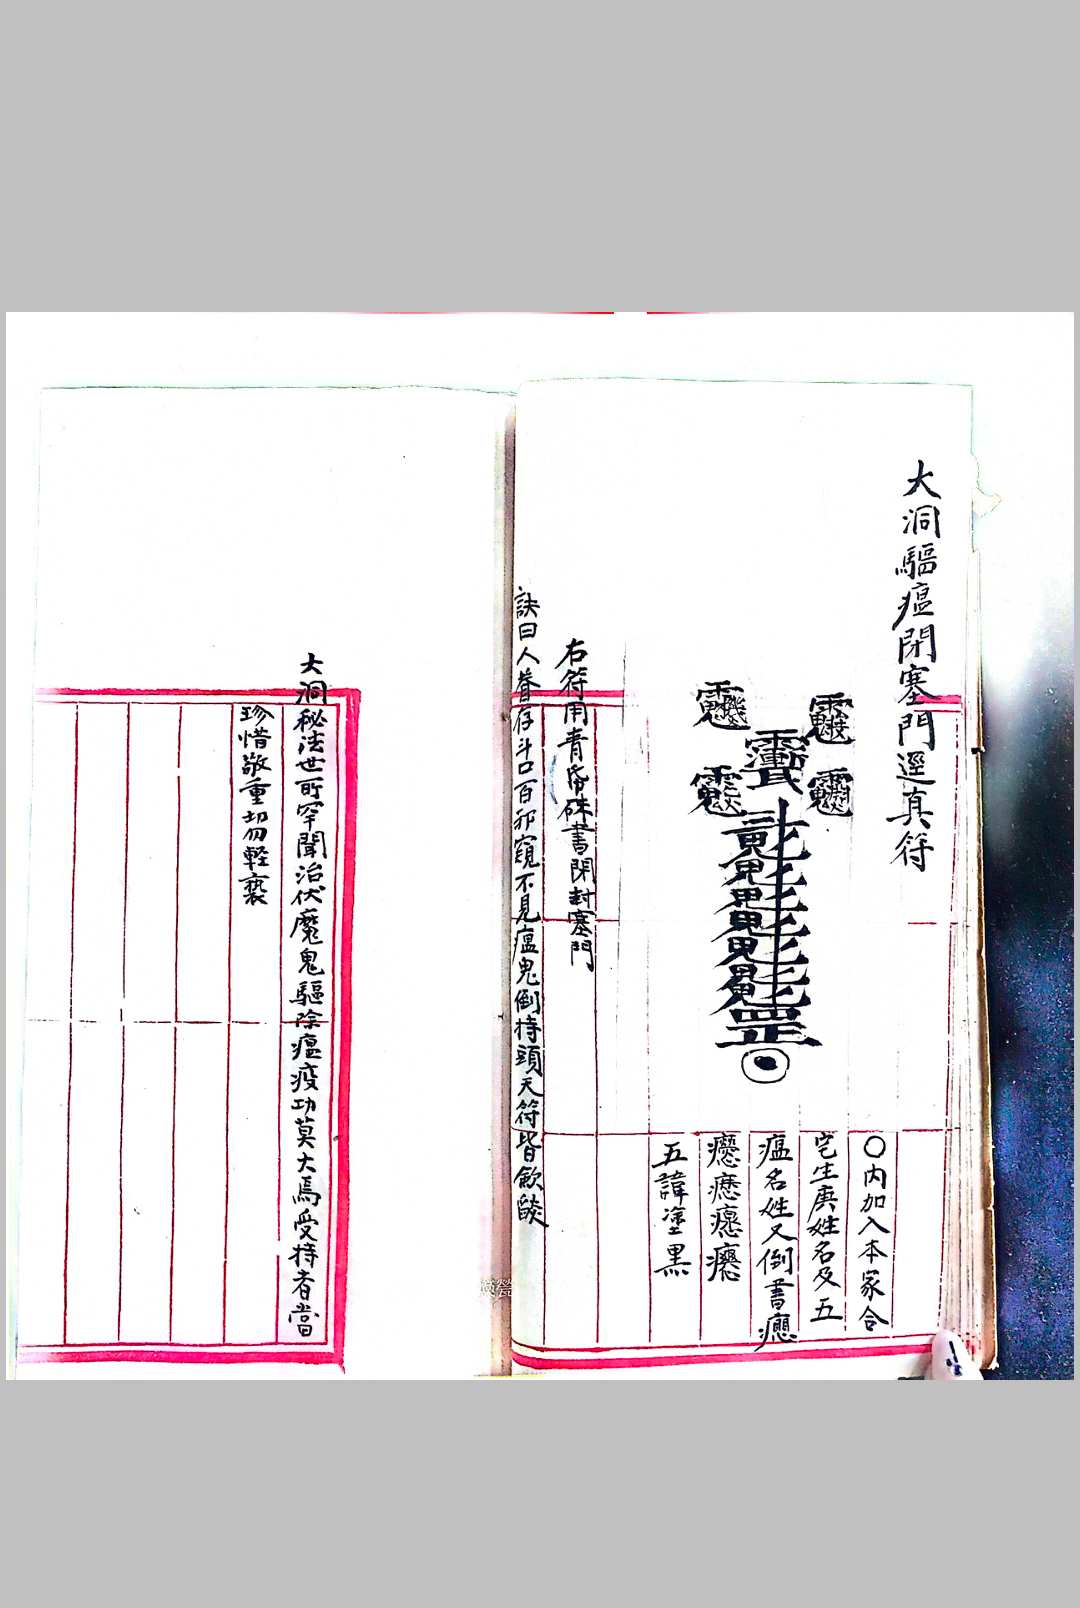 大洞驅瘟閉塞門逕真符
〇內加入本家合
宅生庚姓名及五
瘟名姓又倒書
五諱塗黑
右符用青帋硃書閉封塞門
訣曰人眷存斗口百邪窺不見瘟鬼倒持頭天符皆飲
大洞秘法世所罕聞治伏魔鬼驅除瘟疫功莫大焉受持者當
珍惜敬重切勿輕褻